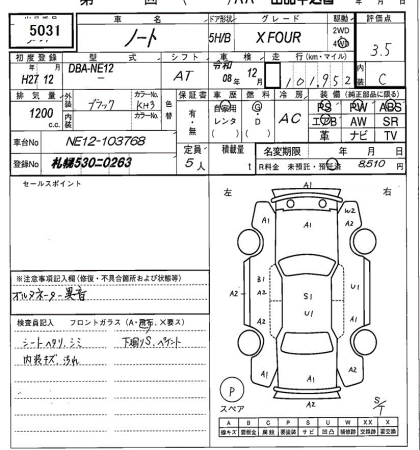 5031
車 名
ドア形状
グレード
駆動
評価点
ノート
5H/B
X FOUR
2WD
4WD
3.5
初度登録
型式
シフト
車検
走行(km・マイル)
内装
H27 12
DBA-NE12
AT
令和
08年 12月
101,952
C
排気量
外装
ブラック
カラーNo.
KH3
色替
保証書
車歴
燃料
冷房
装備(純正部品に限る)
1200
c.c.
内装
カラーNo.
有・無
自家用
レンタ
( )
G・D
( )
AC
PS PW ABS
エアB AW SR
革 ナビ TV
車台No
NE12-103768
定員
5人
積載量
t
名変期限 年 月 日
登録No
札幌530ニ0263
R料金 未預託・預託済 8,510 円
セールスポイント
左
右
A1
A1
W2
A1
A2
A1
A2
B1
A2
A2
S1
U1
U1
A1
A2
A1
A1
A2
A2
※注意事項記入欄(修復・不具合箇所および状態等)
オルタネーター異音
検査員記入 フロントガラス(A・飛石、X要ス)
シートヘタリ、シミ
下廻りS、ペイント
内装キズ、汚れ
P
スペア
S/T
A B C P S U W XX X
線キズ 要鈑金 腐蝕 要塗装 サビ 凹凸 補修跡 交換跡 要交換